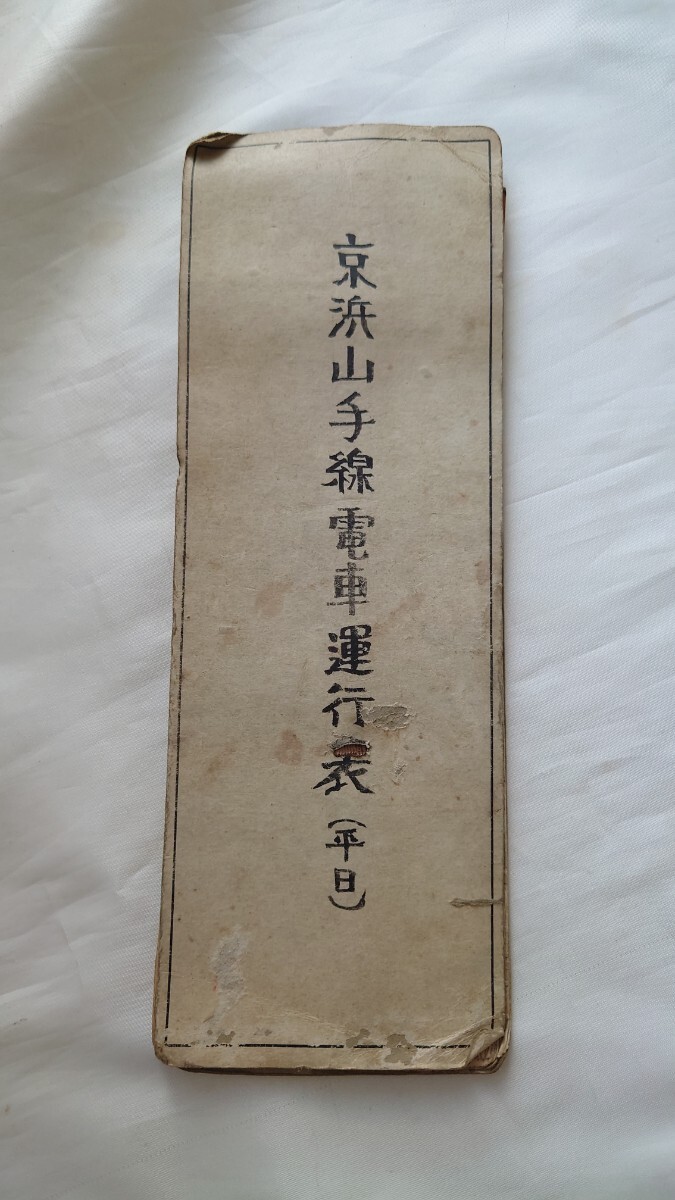 京浜山手線電車運行表(平日)